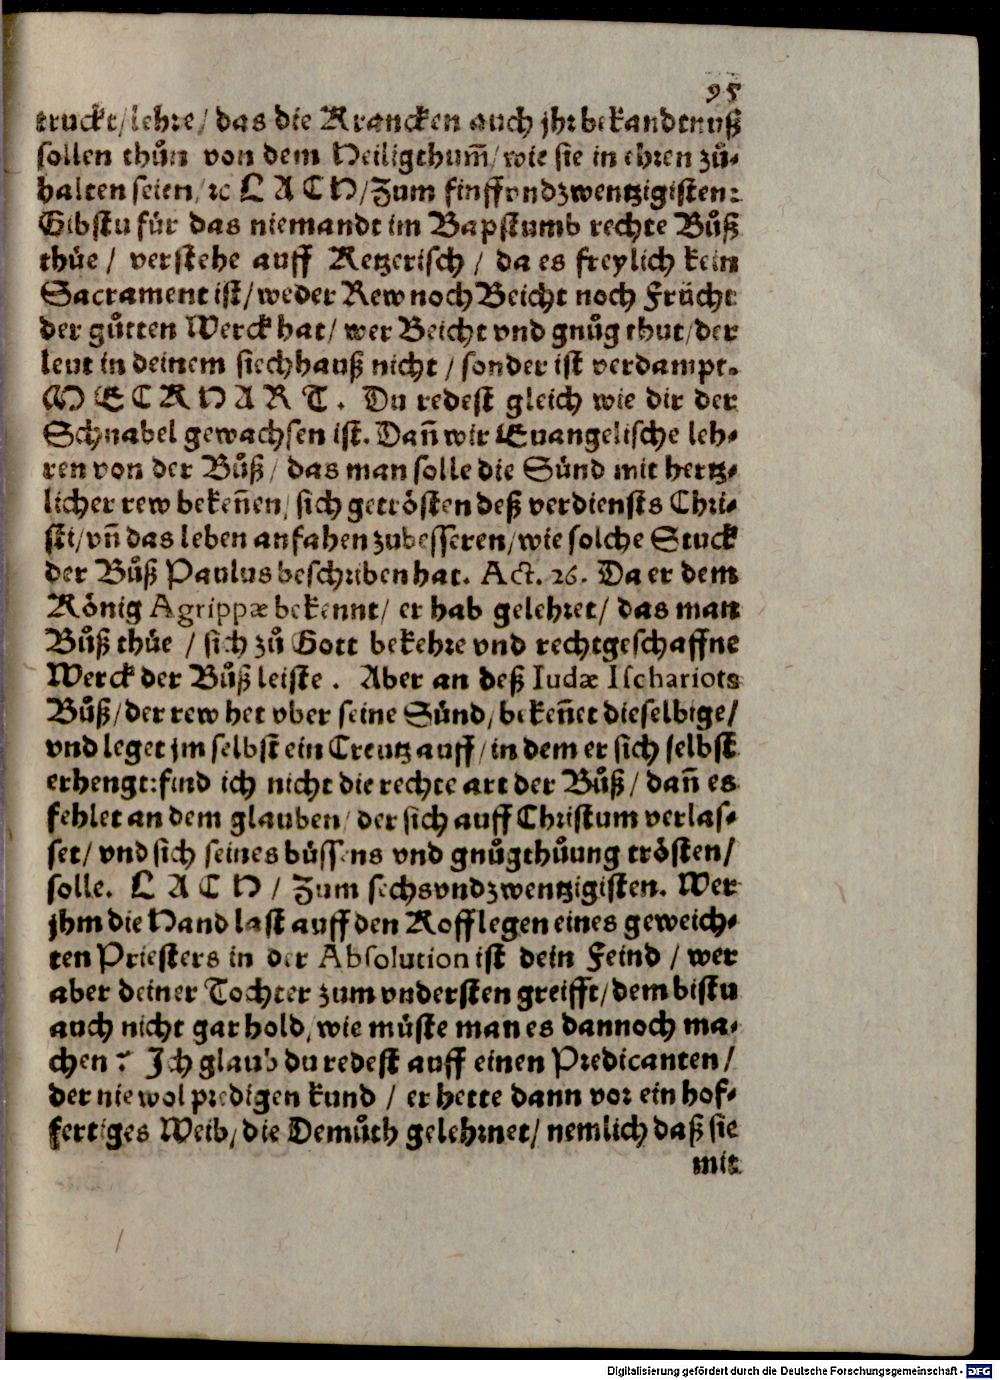 95
truckt/lehre/das die Krancken auch jhr bekandtnuß
sollen thůn von dem Heiligthum̃/wie sie in ehren zů-
halten seien/ꝛc L A C H/Zum finffvndzwentzigisten:
Gibstu für das niemandt im Bapstumb rechte Bůß
thüe / verstehe auff Ketzerisch / da es freylich kein
Sacrament ist/weder Rew noch Beicht noch Frücht
der gůtten Werck hat/ wer Beicht vnd gnůg thut/der
leut in deinem siechhauß nicht / sonder ist verdampt.
M E C K H A R T. Du redest gleich wie dir der
Schnabel gewachsen ist. Dañ wir Euangelische leh-
ren von der Bůß/ das man solle die Sünd mit hertz-
licher rew bekeñen/ sich getrösten deß verdiensts Chri-
sti/vñ das leben anfahen zubesseren/wie solche Stuck
der Bůß Paulus beschriben hat. Act. 26. Da er dem
König Agrippæ bekennt/ er hab gelehret/ das man
Bůß thüe / sich zů Gott bekehre vnd rechtgeschaffne
Werck der Bůß leiste . Aber an deß Iudæ Ischariots
Bůß/der rew het vber seine Sünd/bekeñet dieselbige/
vnd leget jm selbst ein Creutz auff/in dem er sich selbst
erhengt:find ich nicht die rechte art der Bůß/ dañ es
fehlet an dem glauben/ der sich auff Christum verlas-
set/ vnd sich seines büssens vnd gnůgthůung trösten/
solle. L A C H / Zum sechsvndzwentzigisten. Wer
jhm die Hand last auff den Kopff legen eines geweich-
ten Priesters in der Absolution ist dein Feind / wer
aber deiner Tochter zum vndersten greifft/dem bistu
auch nicht gar hold/wie müste man es dannoch ma-
chen ? Ich glaub du redest auff einen Predicanten/
der nie wol predigen kund / er hette dann vor ein hof-
fertiges Weib/die Demůth gelehrnet/ nemlich daß sie
mit
Digitalisierung gefördert durch die Deutsche Forschungsgemeinschaft - DFG